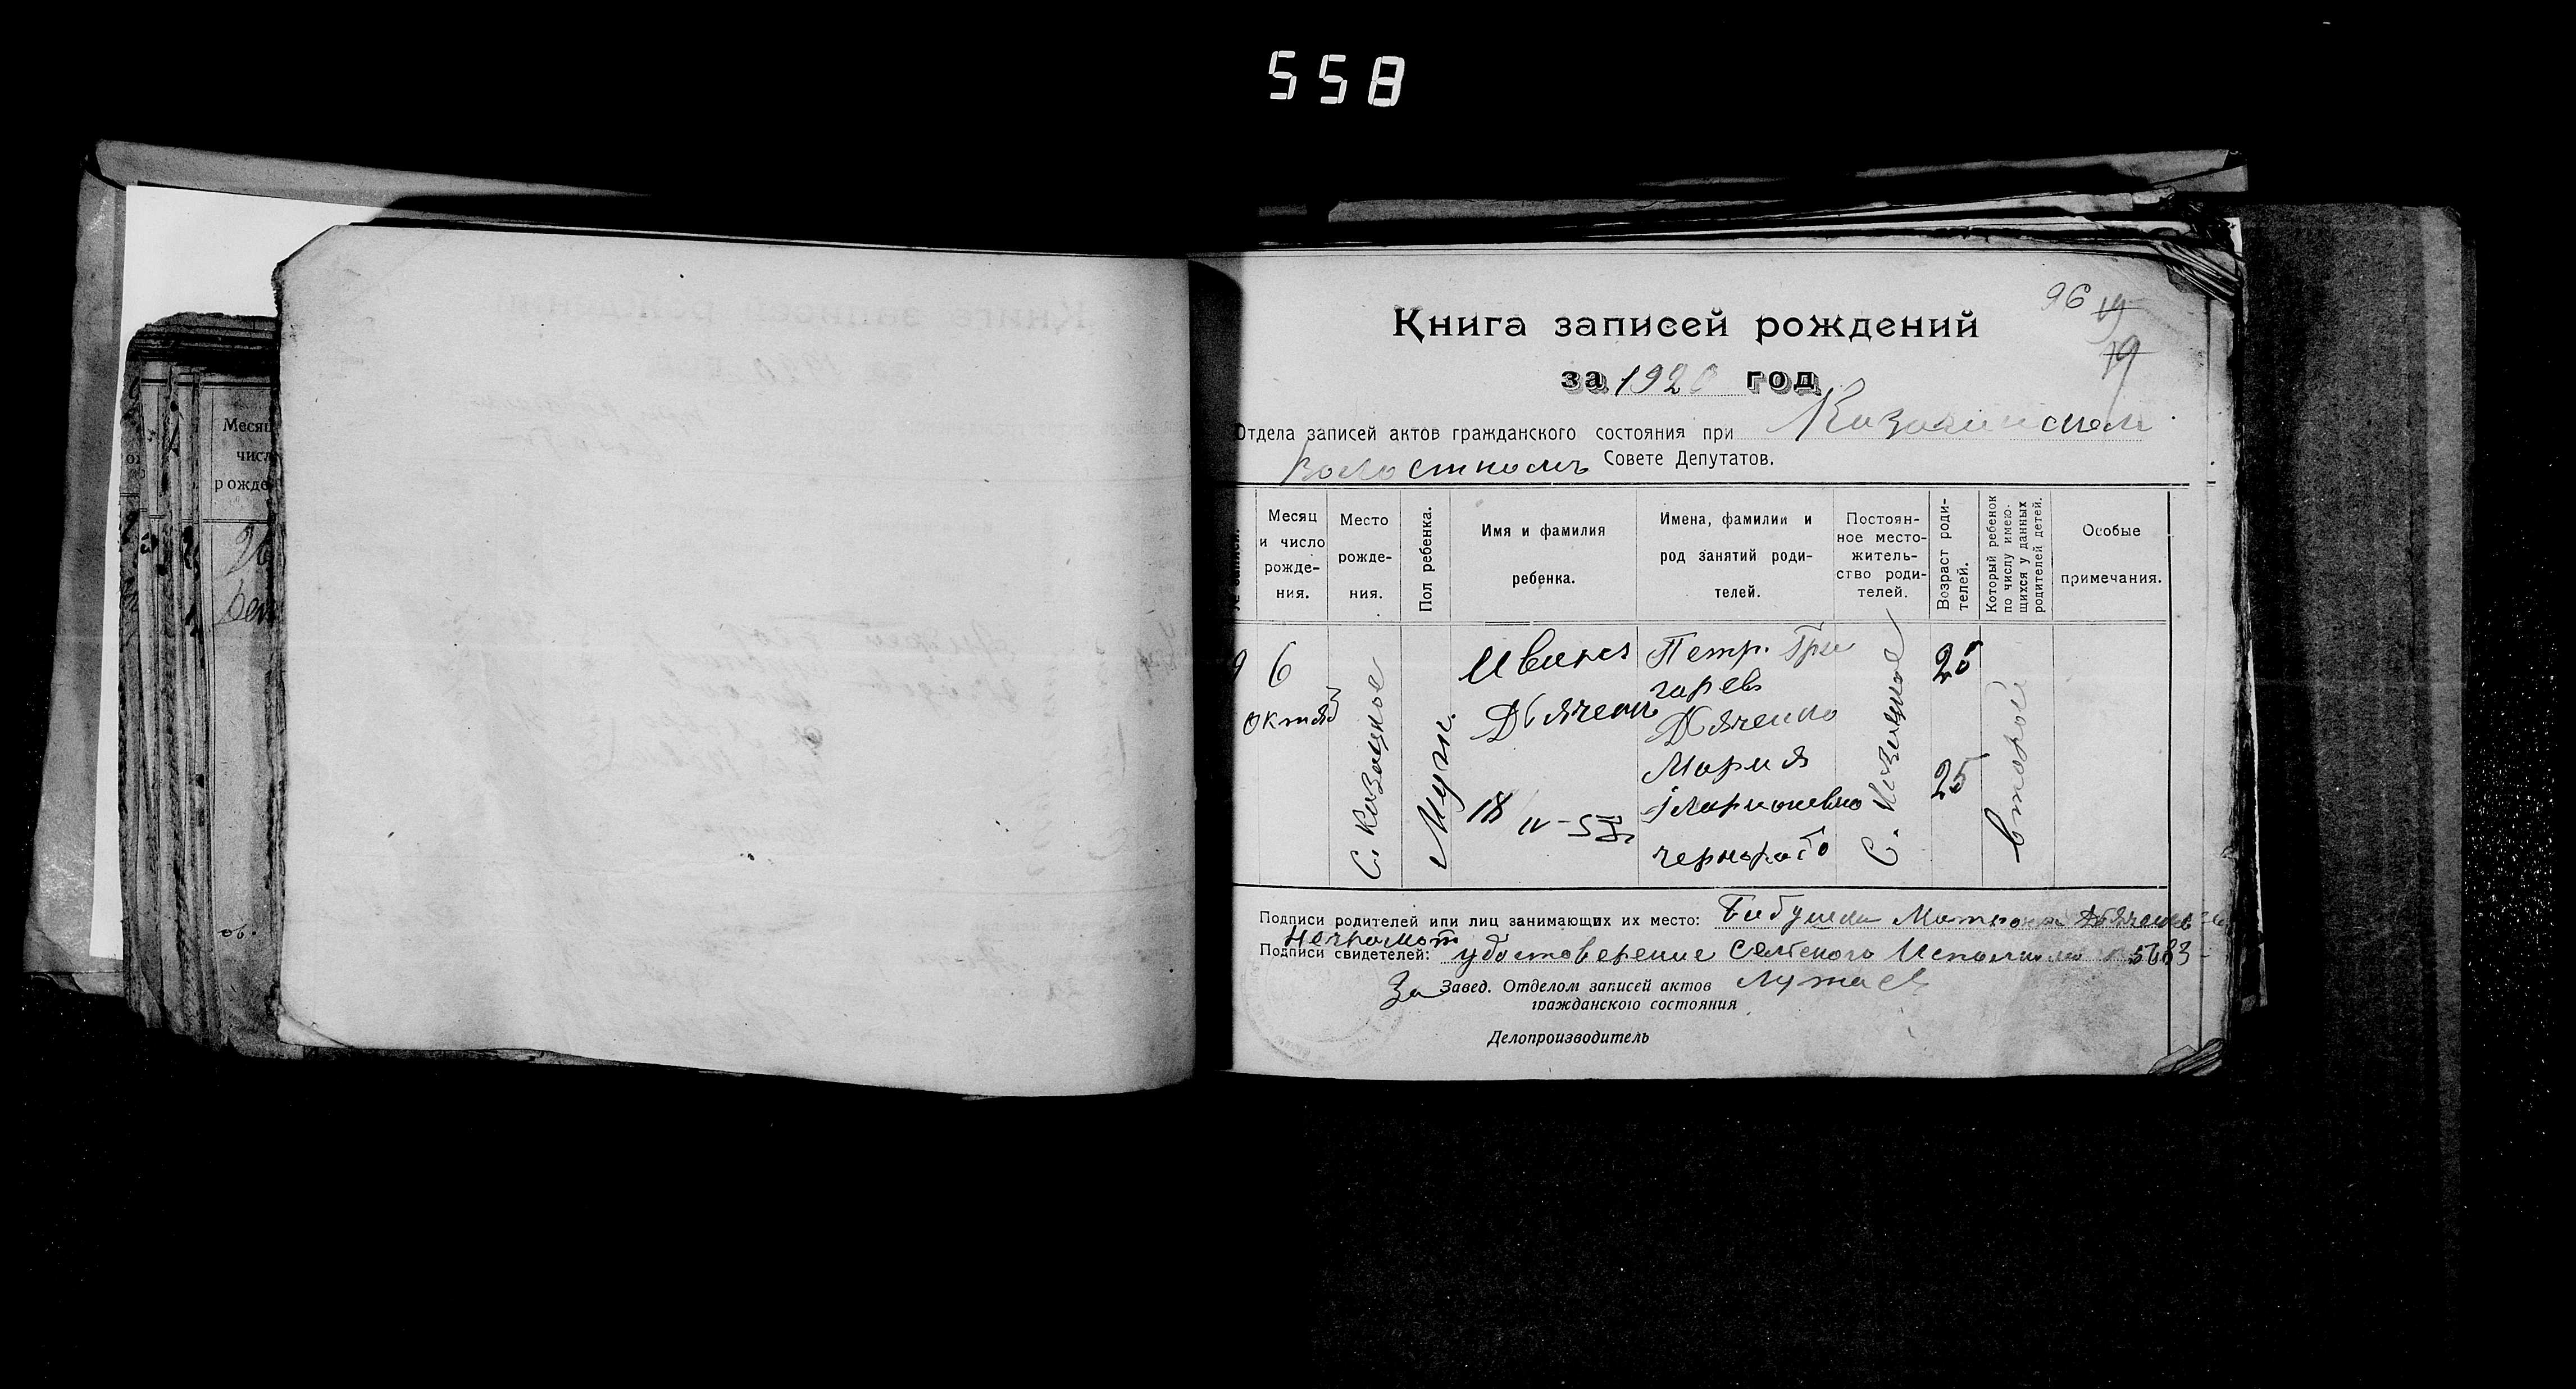 558
Месяц
число
рожде
96 19
19
Книга записей рождений
за 1920 год
Отдела записей актов гражданского состояния при
Волостном Совете Депутатов.
Месяц и число рожде- ния.
Место рожде- ния.
Пол ребенка.
Имя и фамилия ребенка.
Имена, фамилии и род занятий роди- телей.
Постоян- ное место- житель- ство роди- телей.
Возраст роди- телей.
Который ребенок по числу имею- щихся у данных родителей детей.
Особые примечания.
9
6
октяб
с. Казацкое
Муж.
Ивана
Дьяченко
18/IV-57
Петр. Гри
горев
Дьяченко
Мария
Иларионевна
с. Казацкое
25
25
второй
Подписи родителей или лиц занимающих их место: Бабушка Матрона Дьяченко
Неграмот
Подписи свидетелей: удостоверение Сельского
За Завед. Отделом записей актов
гражданского состояния
Делопроизводитель